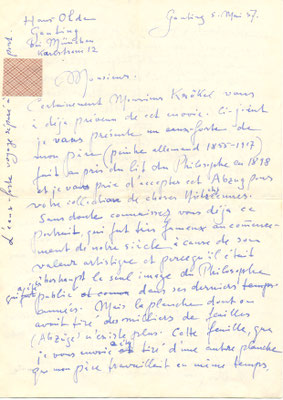 Hans Olde
Gauting
Bei München
Karlstrasse 12
Gauting 5. Mai 57.
Monsieur.
Certainement Monsieur Krökel vous
a déjà prévenu de cet envoie. Ci-joint
je vous présente un eaux-forte de
mon père (peintre allemand 1855-1917)
fait au près du lit du Philosophe en 1898
et je vous prie d'accepter cet Abzug pour
votre collection de choses
Sans doute connaissez vous déja ce
portrait, qui fut très fameux au commence-
ment de notre siècle à cause de son
valeur artistique et parcequ'il était
le seul image du Philosophe
publié dans ses derniers
années. Mais la planche dont on
avait tiré des milliers de feuilles
(Abzüge) n'existe plus. Cette feuille, que
je vous envoie est tiré d'une autre planche
que mon père travaillait en même temps.
L'eaux-forte voyage séparé à part